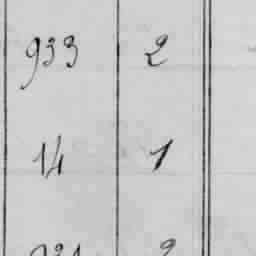 933 2
14 1